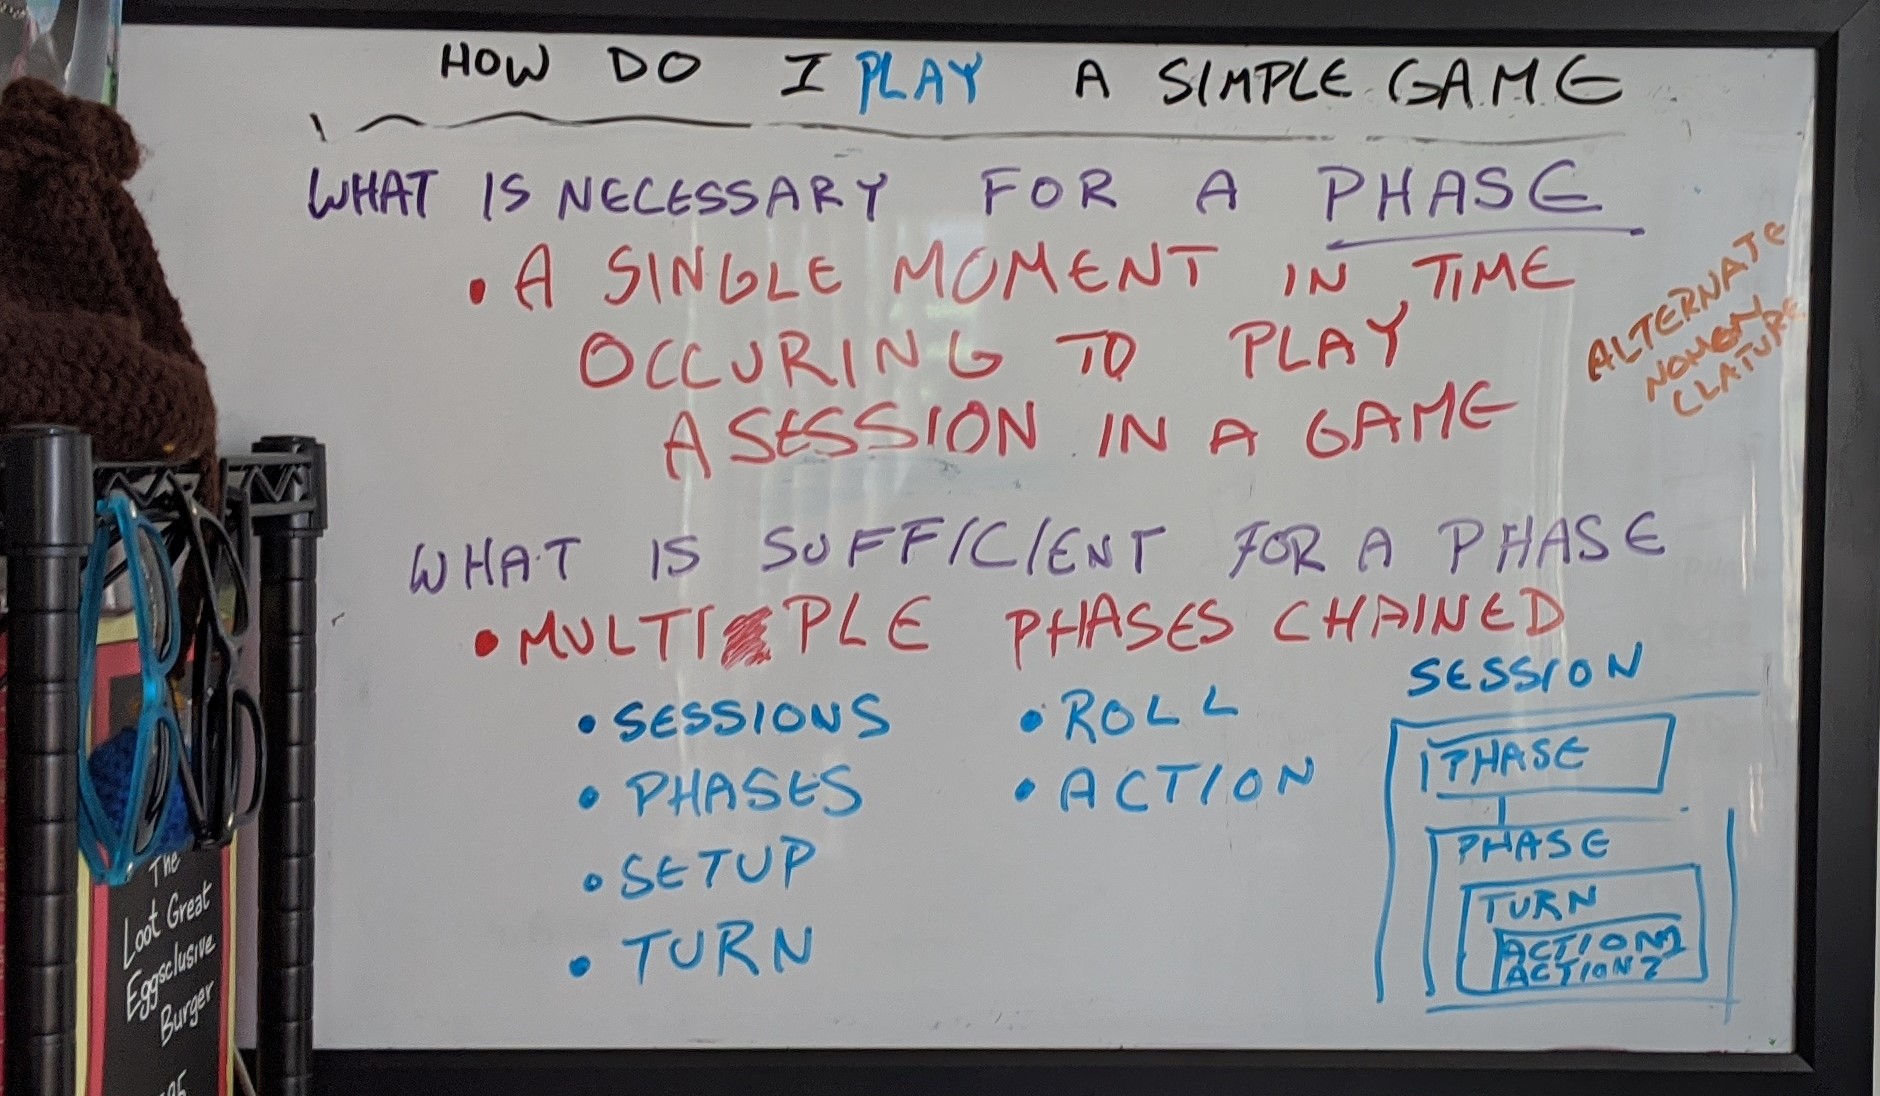 HOW DO I PLAY A SIMPLE GAME
WHAT IS NECESSARY FOR A PHASE
• A SINGLE MOMENT IN TIME
OCCURING TO PLAY
A SESSION IN A GAME
ALTERNATE
NOMEN
CLATURE
WHAT IS SUFFICIENT FOR A PHASE
• MULTIPLE PHASES CHAINED
• SESSIONS
• PHASES
• SETUP
• TURN
• ROLL
• ACTION
SESSION
PHASE
PHASE
TURN
ACTION 1
ACTION 2
The
Loot Great
Eggsclusive
Burger